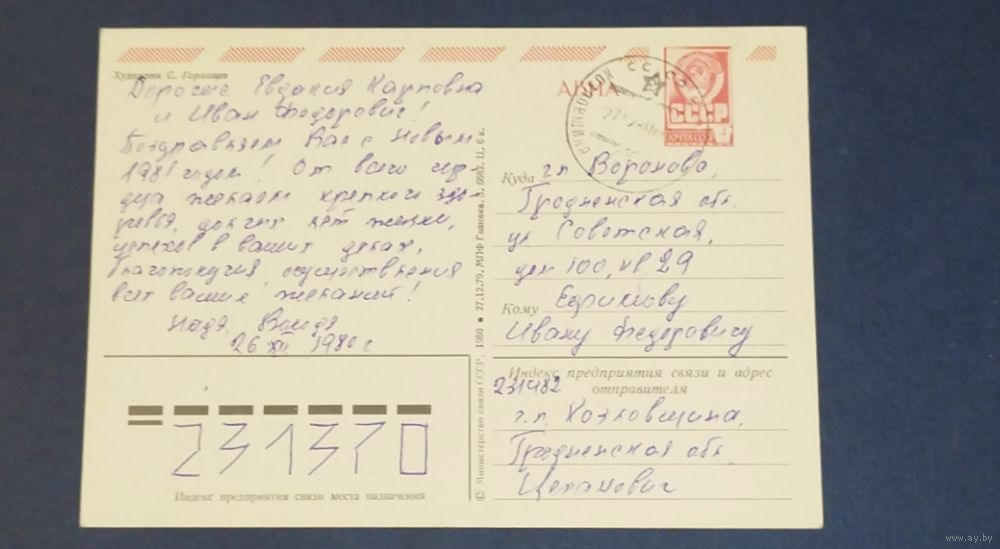 Художник С. Горлищев
Дорогие Евдокия Карповна
и Иван Федорович!
Поздравляем Вас с Новым
1981 годом! От всего сер-
дца желаем крепкого здо-
ровья, долгих лет жизни,
успехов в ваших делах,
благополучия, осуществления
всех ваших желаний!
Надя. Володя
26 XII 1980 г
231370
Индекс предприятия связи места назначения
© Министерство связи СССР, 1980 ● 27.12.79. МПФ Гознака.
АВИА
СССР
КОЗЛОВЩИНА
Куда гп Вороново,
Гродненская обл.
ул Советская,
дом 100, кв 29
Кому
Ивану Федоровичу
Индекс предприятия связи и адрес
отправителя
231482
г.п. Козловщина
Гродненская обл
Цепанович
www.ay.by